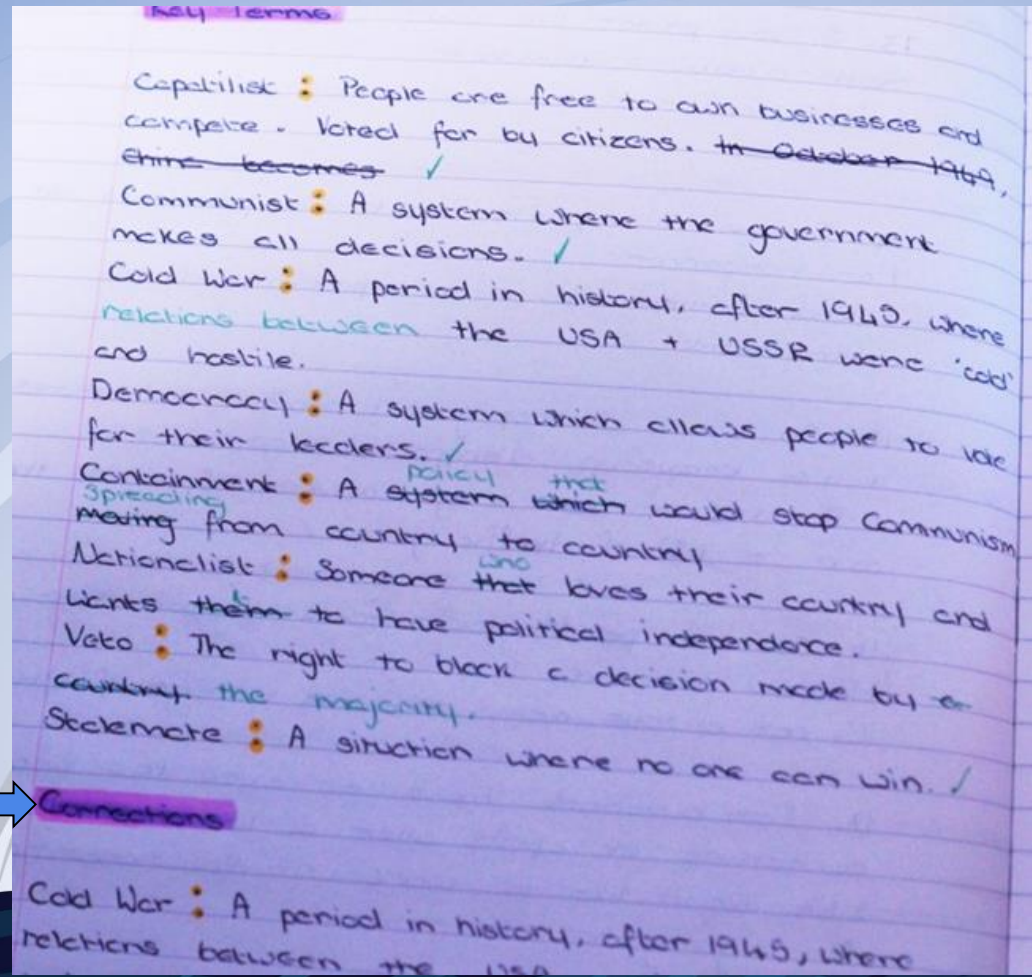 Key Terms
Capatilist : People are free to own businesses and
compete. Voted for by citizens. In October 1949,
China becomes ✓
Communist : A system where the government
makes all decisions. ✓
Cold War : A period in history, after 1945, where
relations between the USA + USSR were 'cold'
and hostile.
Democracy : A system which allows people to vote
for their leaders. ✓
policy that
Containment : A system which would stop Communism
spreading
moving from country to country
who
Nationalist : Someone that loves their country and
wants them to have political independence.
Veto : The right to block a decision made by a
country the majority.
Stalemate : A situation where no one can win. ✓
Connections
Cold War : A period in history, after 1945, where
relations between the USA